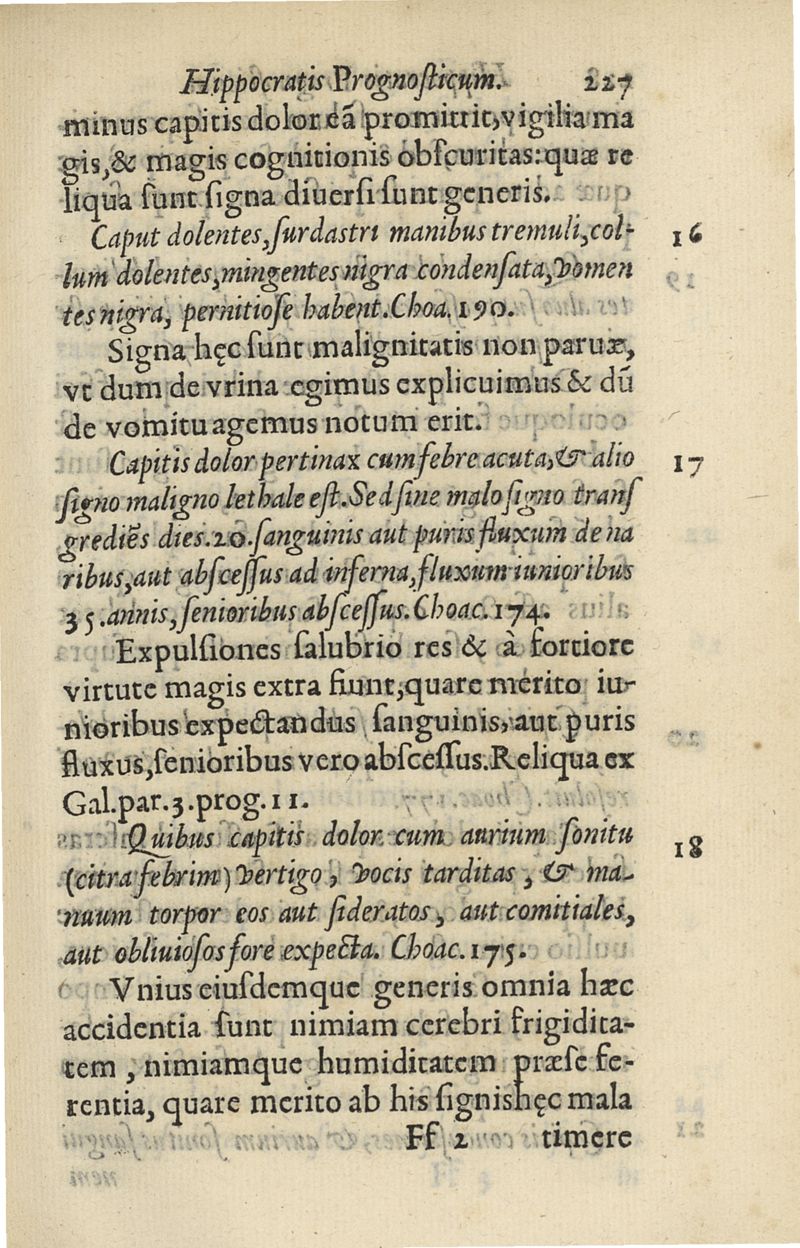 Hippocratis Prognosticum. 227
minus capitis dolor eā promittit, vigilia ma
gis, & magis cognitionis obscuritas: quæ re
liqua sunt signa diuersi sunt generis.
Caput dolentes, surdastri manibus tremuli, col- 16
lum dolentes, mingentes nigra condensata, vomen
tes nigra, pernitiose habent. Choa. 190.
Signa hęc sunt malignitatis non paruæ,
vt dum de vrina egimus explicuimus & dū
de vomitu agemus notum erit.
Capitis dolor pertinax cum febre acuta, & alio 17
signo maligno lethale est. Sed sine malo signo trans
grediēs dies. 20. sanguinis aut puris fluxum de na
ribus, aut abscessus ad inferna, fluxum iunioribus
35. annis, senioribus abscessus. Choac. 174.
Expulsiones salubrio res & à fortiore
virtute magis extra fiunt, quare merito iu-
nioribus expectandus sanguinis, aut puris
fluxus, senioribus vero abscessus. Reliqua ex
Gal. par. 3. prog. 11.
Quibus capitis dolor cum aurium sonitu 18
(citra febrim) vertigo, vocis tarditas, & ma-
nuum torpor eos aut sideratos, aut comitiales,
aut obliuiosos fore expecta. Choac. 175.
Vnius eiusdemque generis omnia hæc
accidentia sunt nimiam cerebri frigidita-
tem, nimiamque humiditatem præse fe-
rentia, quare merito ab his signis hęc mala
Ff 2 timere